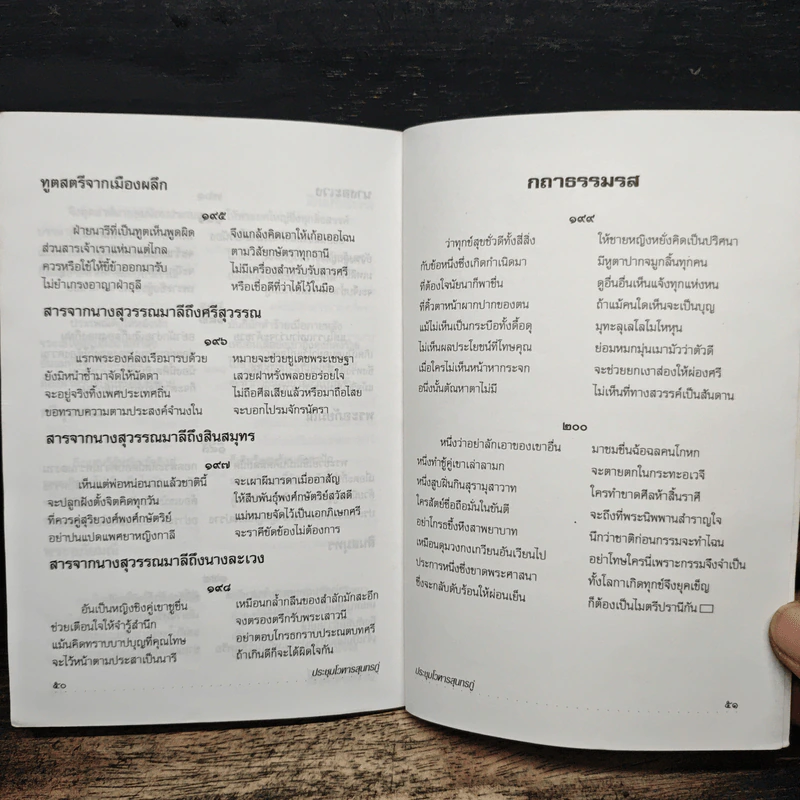 ทูตสตรีจากเมืองผลึก
๑๙๕
ฝ่ายนารีที่เป็นทูตเห็นพูดผิด จึงแกล้งคิดเอาให้เก้อเออไฉน
ส่วนสารเจ้าเราแห่มาแต่ไกล ตามวิสัยกษัตราทุกธานี
ควรหรือใช้ให้ขี้ข้าออกมารับ ไม่มีเครื่องสำหรับรับสารศรี
ไม่ยำเกรงอาญาฝ่าธุลี หรือเชื่อดีที่ว่าได้ไว้ในมือ
สารจากนางสุวรรณมาลีถึงศรีสุวรรณ
๑๙๖
แรกพระองค์ลงเรือมารบด้วย หมายจะช่วยชูเดชพระเชษฐา
ยังมิหนำซ้ำมาจัดให้นัดดา เสวยฝาหรั่งพลอยอร่อยใจ
จะอยู่จริงทิ้งเพศประเทศถิ่น ไม่ถือศีลเสียแล้วหรือมาถือไสย
ขอทราบความตามประสงค์จำนงใน จะบอกไปรมจักรนัครา
สารจากนางสุวรรณมาลีถึงสินสมุทร
๑๙๗
เห็นแต่พ่อหน่อนาถแล้วชาตินี้ จะเผาผีมารดาเมื่ออาสัญ
จะปลูกฝังตั้งจิตคิดทุกวัน ให้สืบพันธุ์พงศ์กษัตริย์สวัสดี
ที่ควรคู่สุริยวงศ์พงศ์กษัตริย์ แม่หมายจัดไว้เป็นเอกภิเษกศรี
อย่าปนแปดแพศยาหญิงกาลี จะราคีขัดข้องไม่ต้องการ
สารจากนางสุวรรณมาลีถึงนางละเวง
๑๙๘
อันเป็นหญิงชิงคู่เขาชูชื่น เหมือนกล้ำกลืนของสำลักมักสะอึก
ช่วยเตือนใจให้จำรู้สำนึก จงตรองตรึกรับพระเสาวนี
แม้นคิดทราบบาปบุญที่คุณโทษ อย่าตอบโกรธกราบประณตบทศรี
จะไว้หน้าตามประสาเป็นนารี ถ้าเกินดีก็จะได้ผิดใจกัน
ประชุมโวหารสุนทรภู่
๕๐
กถาธรรมรส
๑๙๙
ว่าทุกข์สุขชั่วดีทั้งสี่สิ่ง ให้ชายหญิงหยั่งคิดเป็นปริศนา
กับข้อหนึ่งซึ่งเกิดกำเนิดมา มีหูตาปากจมูกลิ้นทุกคน
ที่ต้องใจนัยนาก็พาชื่น ดูอื่นอื่นเห็นแจ้งทุกแห่งหน
ที่คิ้วตาหน้าผากปากของตน ถ้าแม้คนใดเห็นจะเป็นบุญ
แม้ไม่เห็นเป็นกระบือทั้งดื้อดุ มุทะลุเลโลโมโหหุน
ไม่เห็นผลประโยชน์ที่โทษคุณ ย่อมหมกมุ่นเมามัวว่าตัวดี
เมื่อใครไม่เห็นหน้าหากระจก จะช่วยยกเงาส่องให้ผ่องศรี
อนึ่งนั้นตัณหาตาไม่มี ไม่เห็นที่ทางสวรรค์เป็นสันดาน
๒๐๐
หนึ่งว่าอย่าลักเอาของเขาอื่น มาชมชื่นฉ้อฉลคนโกหก
หนึ่งทำชู้คู่เขาเล่าลามก จะตายตกในกระทะอเวจี
หนึ่งสูบฝิ่นกินสุรามุสาวาท ใครทำขาดศีลห้าสิ้นราศี
ใครสัตย์ซื่อถือมั่นในขันตี จะถึงที่พระนิพพานสำราญใจ
อย่าโกรธขึ้งหึงสาพยาบาท นึกว่าชาติก่อนกรรมจะทำไฉน
เหมือนดุมวงกงเกวียนอันเวียนไป อย่าโทษใครนี่เพราะกรรมจึงจำเป็น
ประการหนึ่งซึ่งขาดพระศาสนา ทั้งโลกาเกิดทุกข์จึงยุคเข็ญ
ซึ่งจะกลับดับร้อนให้ผ่อนเย็น ก็ต้องเป็นไมตรีปรานีกัน
ประชุมโวหารสุนทรภู่
๕๑